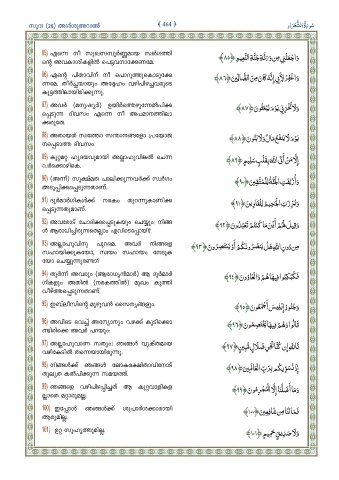 സൂറഃ (26) അശ്ശുഅറാഅ് ﴾ 464 ﴿ سُورَةُ الشُّعَرَاء
85) എന്നെ നീ സുഖസമ്പൂർണ്ണമായ സ്വർഗത്തി
ന്റെ അവകാശികളിൽ പെട്ടവനാക്കേണമേ.
وَاجْعَلْنِي مِن وَرَثَةِ جَنَّةِ النَّعِيمِ ﴿٨٥﴾
86) എന്റെ പിതാവിന് നീ പൊറുത്തുകൊടുക്കേ
ണമേ. തീർച്ചയായും അദ്ദേഹം വഴിപിഴച്ചവരുടെ
കൂട്ടത്തിലായിരിക്കുന്നു.
وَاغْفِرْ لِأَبِي إِنَّهُ كَانَ مِنَ الضَّالِّينَ ﴿٨٦﴾
87) അവർ (മനുഷ്യർ) ഉയിർത്തെഴുന്നേൽപിക്ക
പ്പെടുന്ന ദിവസം എന്നെ നീ അപമാനത്തിലാ
ക്കരുതേ.
وَلَا تُخْزِنِي يَوْمَ يُبْعَثُونَ ﴿٨٧﴾
88) അതായത് സ്വത്തോ സന്താനങ്ങളോ പ്രയോജ
നപ്പെടാത്ത ദിവസം.
يَوْمَ لَا يَنفَعُ مَالٌ وَلَا بَنُونَ ﴿٨٨﴾
89) കുറ്റമറ്റ ഹൃദയവുമായി അല്ലാഹുവിങ്കൽ ചെന്ന
വർക്കൊഴികെ.
إِلَّا مَنْ أَتَى اللَّهَ بِقَلْبٍ سَلِيمٍ ﴿٨٩﴾
90) (അന്ന്) സൂക്ഷ്മത പാലിക്കുന്നവർക്ക് സ്വർഗം
അടുപ്പിക്കപ്പെടുന്നതാണ്.
وَأُزْلِفَتِ الْجَنَّةُ لِلْمُتَّقِينَ ﴿٩٠﴾
91) ദുർമാർഗികൾക്ക് നരകം തുറന്നുകാണിക്ക
പ്പെടുന്നതുമാണ്.
وَبُرِّزَتِ الْجَحِيمُ لِلْغَاوِينَ ﴿٩١﴾
92) അവരോട് ചോദിക്കപ്പെടുകയും ചെയ്യും: നിങ്ങ
ൾ ആരാധിച്ചിരുന്നതെല്ലാം എവിടെപ്പോയി?
وَقِيلَ لَهُمْ أَيْنَ مَا كُنتُمْ تَعْبُدُونَ ﴿٩٢﴾
93) അല്ലാഹുവിനു പുറമെ. അവർ നിങ്ങളെ
സഹായിക്കുകയോ, സ്വയം സഹായം നേടുക
യോ ചെയ്യുന്നുണ്ടോ?
مِن دُونِ اللَّهِ هَلْ يَنصُرُونَكُمْ أَوْ يَنتَصِرُونَ ﴿٩٣﴾
94) തുടർന്ന് അവരും (ആരാധ്യന്മാർ) ആ ദുർമാർ
ഗികളും അതിൽ (നരകത്തിൽ) മുഖം കുത്തി
വീഴ്ത്തപ്പെടുന്നതാണ്.
فَكُبْكِبُوا فِيهَا هُمْ وَالْغَاوُونَ ﴿٩٤﴾
95) ഇബ്ലീസിന്റെ മുഴുവൻ സൈന്യങ്ങളും.
وَجُنُودُ إِبْلِيسَ أَجْمَعُونَ ﴿٩٥﴾
96) അവിടെ വെച്ച് അന്യോന്യം വഴക്ക് കൂടിക്കൊ
ണ്ടിരിക്കെ അവർ പറയും:
قَالُوا وَهُمْ فِيهَا يَخْتَصِمُونَ ﴿٩٦﴾
97) അല്ലാഹുവാണെ സത്യം! ഞങ്ങൾ വ്യക്തമായ
വഴികേടിൽ തന്നെയായിരുന്നു.
تَاللَّهِ إِن كُنَّا لَفِي ضَلَالٍ مُّبِينٍ ﴿٩٧﴾
98) നിങ്ങൾക്ക് ഞങ്ങൾ ലോകരക്ഷിതാവിനോട്
തുല്യത കൽപിക്കുന്ന സമയത്ത്.
إِذْ نُسَوِّيكُم بِرَبِّ الْعَالَمِينَ ﴿٩٨﴾
99) ഞങ്ങളെ വഴിപിഴപ്പിച്ചത് ആ കുറ്റവാളികള
ല്ലാതെ മറ്റാരുമല്ല.
وَمَا أَضَلَّنَا إِلَّا الْمُجْرِمُونَ ﴿٩٩﴾
100) ഇപ്പോൾ ഞങ്ങൾക്ക് ശുപാർശക്കാരായി
ആരുമില്ല.
فَمَا لَنَا مِن شَافِعِينَ ﴿١٠٠﴾
101) ഉറ്റ സുഹൃത്തുമില്ല.
وَلَا صَدِيقٍ حَمِيمٍ ﴿١٠١﴾